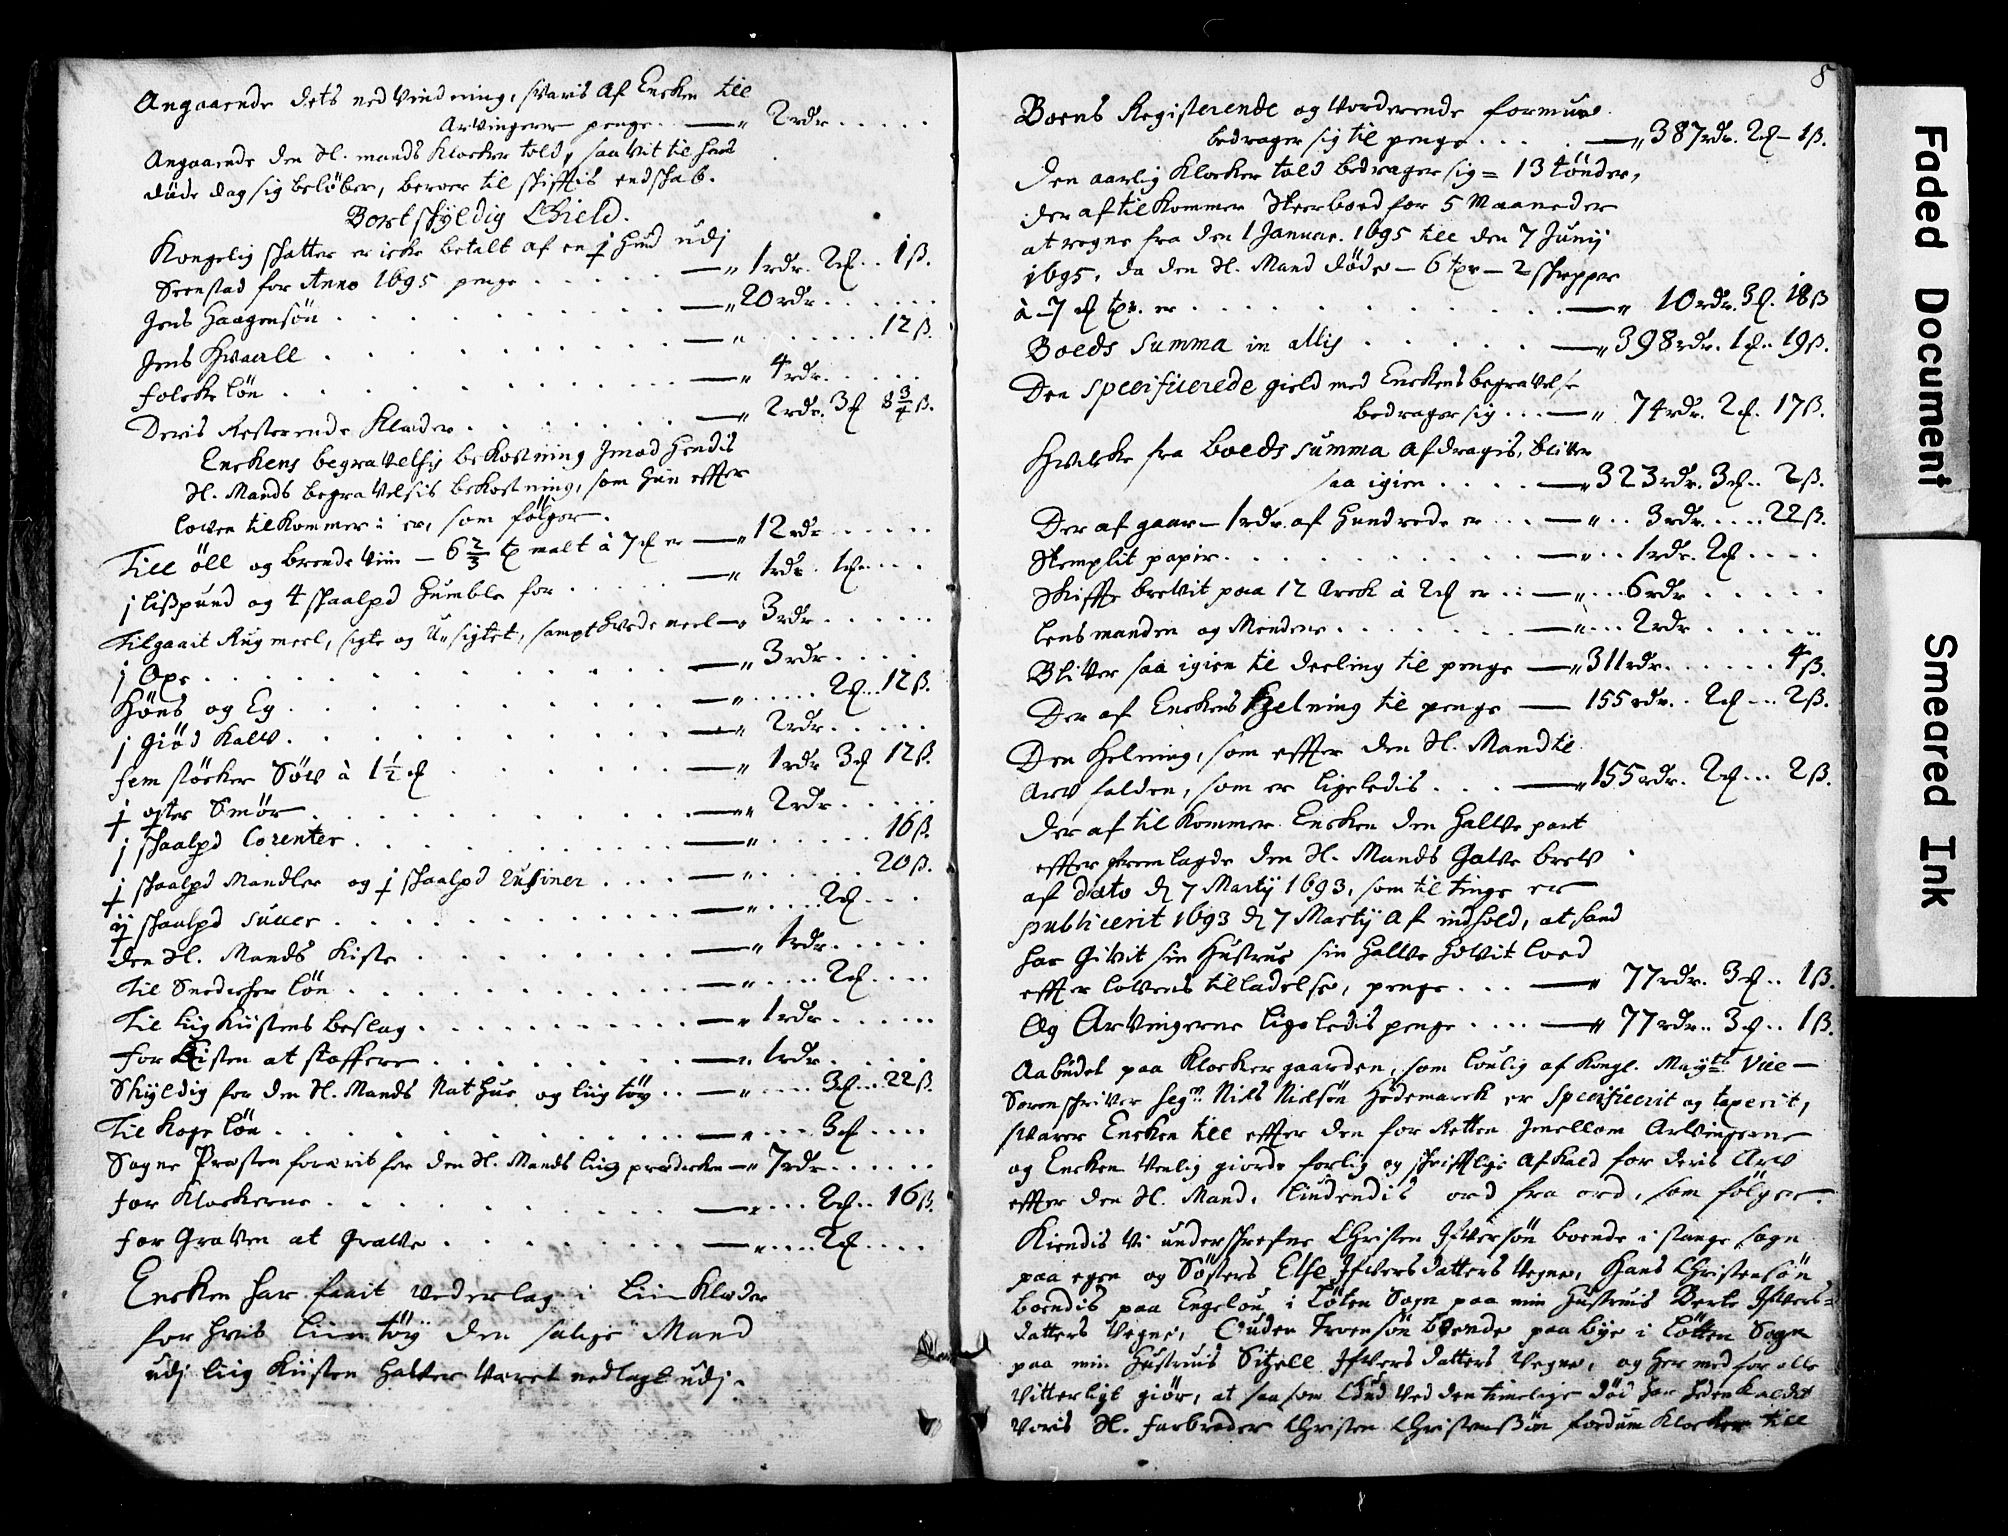 Angaaende dets nedVindning, svaris af Encken till
Arvingerne penge — " 2 rdr . . . . .
Angaaende den Sl. mands Klocker told, saa Vit til hans
döde dag sig belöber, beroer til skifftis endskab.
Bortskÿldig Gield.
Kongelig skatter er icke betalt af en j hud udj
Steenstad for Anno 1695 penge . . . — " 1 rdr. 2 ₰ . . 1 ß.
Jens Haagensön . . . — " 20 rdr . . . . .
Jens Hvaall . . . — " . . . . . 12 ß.
Folcke lön . . . — " 4 rdr. . . .
Deris Resterende Klæder . . . — " 2 rdr. 3 ₰ 8 3/4 ß.
Enckens begravelsis bekostning Jmod hendis
Sl. Mands begravelsis bekostning, som hun effter
loven tilkommer: er, som fölger.
Till öll og brende Viin — 6 2/3 tr malt à 7 ₰ er — " 12 rdr . . . . .
j lißpund og 4 skaalpd Humble for . . . — " 1 rdr . 1 ₰ . . . .
Tilgaait Rug meel, sigte og U-sigtet, sampt hvede meel — " 3 rdr . . . . .
j Oxe . . . — " 3 rdr . . . . .
Höns og Eg . . . — " . . . . 2 ₰ . . 12 ß.
j Giöd Kalv . . . — " 2 rdr . . . . .
Fem stöcker Söv à 1 1/2 ₰ . . . — " 1 rdr 3 ₰ 12 ß.
j Smör . . . — " 2 rdr . . . . .
j skaalpd Corenter . . . — " . . . . . 16 ß.
j skaalpd Mandler og j skaalpd Rusiner . . . . — " . . . . . 20 ß.
ij skaalpd Sucer . . . — " . . . . 2 ₰ . . .
den Sl. Mands Kiste . . . — " 1 rdr . . . . .
Til Snedicher lön . . . — " . . . . 2 ₰ . . . .
Til liig Kiistens beslag . . . — " 1 rdr . . . . .
for Kisten at staffere . . . — " 1 rdr . . . . .
Skÿldig for den Sl. Mands Nat hue og liig töÿ . . — " . . . . 3 ₰ . . 22 ß.
Til Koge lön . . . — " . . . . 3 ₰ . . . .
Sogne Præsten forærit for den Sl. Mands liig prædicken — " 7 rdr . . . . .
for Klockerne . . . — " . . . . 2 ₰ . . 16 ß.
for Graven at Grave . . . — " . . . . 2 ₰ . . . .
Encken har faait vederlag i Liin Klæder
for hvis liin töÿ den salige Mand
udj liig Kiisten hafver Været nedlagt udj.
8
Boens Registerende og Vorderende formue
bedrager sig til penge . . . . — " 387 rdr. 2 ₰ – 1 ß.
Den aarlig Klocker told bedrager sig = 13 tönder,
der af til Kommer Steerboed for 5 Maaneder
at regne fra den 1 Januar. 1695 till den 7 Junij
1695, da den Sl. Mand döde — 6 tr — 2 skepper
à 7 ₰ tr. er . . . — " 10 rdr. 3 ₰. 18 ß
Boeds Summa in allis . . . — " 398 rdr. 1 ₰ . 19 ß.
Den specificerede gield med Enckens begravelse
bedrager sig . . . — " 74 rdr. 2 ₰. 17 ß.
Hvilcke fra boeds summa afdragis, bliver
saa igien . . . . — " 323 rdr. 3 ₰ . . 2 ß.
Der af gaar – 1 rdr. af Hundrede er . . . — " . . 3 rdr. . . . 22 ß.
Stemplit papir . . . — " . . 1 rdr. 2 ₰ . . . .
Skiffte brevit paa 12 Arck à 2 ₰ er . . — " . . . 6 rdr . . . . .
Lensmanden og Mendene . . . — " . . . 2 rdr . . . . .
Bliver saa igien til deeling til penge — " 311 rdr. . . . . . 4 ß.
Der af Enckens Helning til penge — 155 rdr. . 2 ₰ . . . 2 ß.
Den Helning, som effter den Sl. Mand til
Arv falden, som er ligeledis . . . — " 155 rdr. 2 ₰ . . . 2 ß.
der af til Kommer Encken den halve part
effter fremlagde den Sl. Mands Gave brev
af dato d 7 Martij 1693, som til tinge er
publicerit 1693 d 7 Martij af indhold, at hand
har Givit sin Hustrue sin halve hovit lood
effter lovens tilladelse, penge . . . — " 77 rdr. 3 ₰ . . 1 ß.
Og Arvingerne ligeledis penge . . . . — " 77 rdr. . 3 ₰ . . 1 ß.
Aabudet paa Klocker gaarden, som loulig af Kongl. Maÿts Vice —
Sorenschriver Segr Niels Nielsön Hedemarck er specificerit og taxerit,
svarer Encken till effter den for Retten Jmellom Arvingerne
og Encken Venlig giorde forlig og skrifftlige Afkald for deris Arv
effter den Sl. Mand, liudendis ord fra ord, som fölger.
Kiendis Vi underskrefne Christen Ifversön boende i stange sogn
paa egen og Sösters Else Ifvers datters Vegne, Hans Christensön
boendis paa Engelou i Löten Sogn paa min Hustrues Berte Ifvers=
datters Vegne, Guden Troensön boende paa bÿe i Lötten Sogn
paa min Hustrues Sitzell Ifvers datters Vegne, og her med for alle
Vitterligt giör, at saasom Gud Ved den timelige död har heden Kaldet
Voris Sl. Farbroder Christen Christensßön fordum Klocker till
Faded Document
Smeared Ink